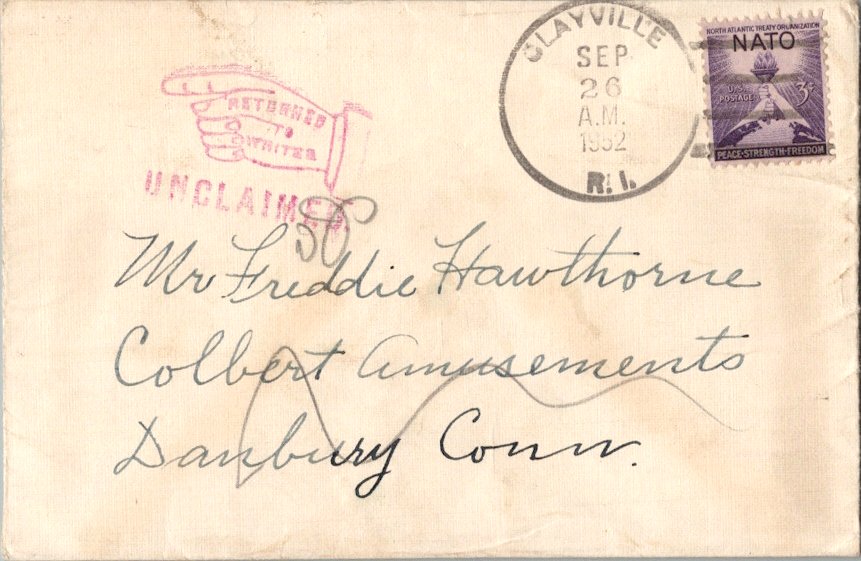 CLAYVILLE
SEP
26
A.M.
1952
R. I.
NORTH ATLANTIC TREATY ORGANIZATION
NATO
U.S. POSTAGE
3¢
PEACE-STRENGTH-FREEDOM
RETURNED
TO
WRITER
UNCLAIMED
Mr Freddie Hawthorne
Colbert Amusements
Danbury Conn.